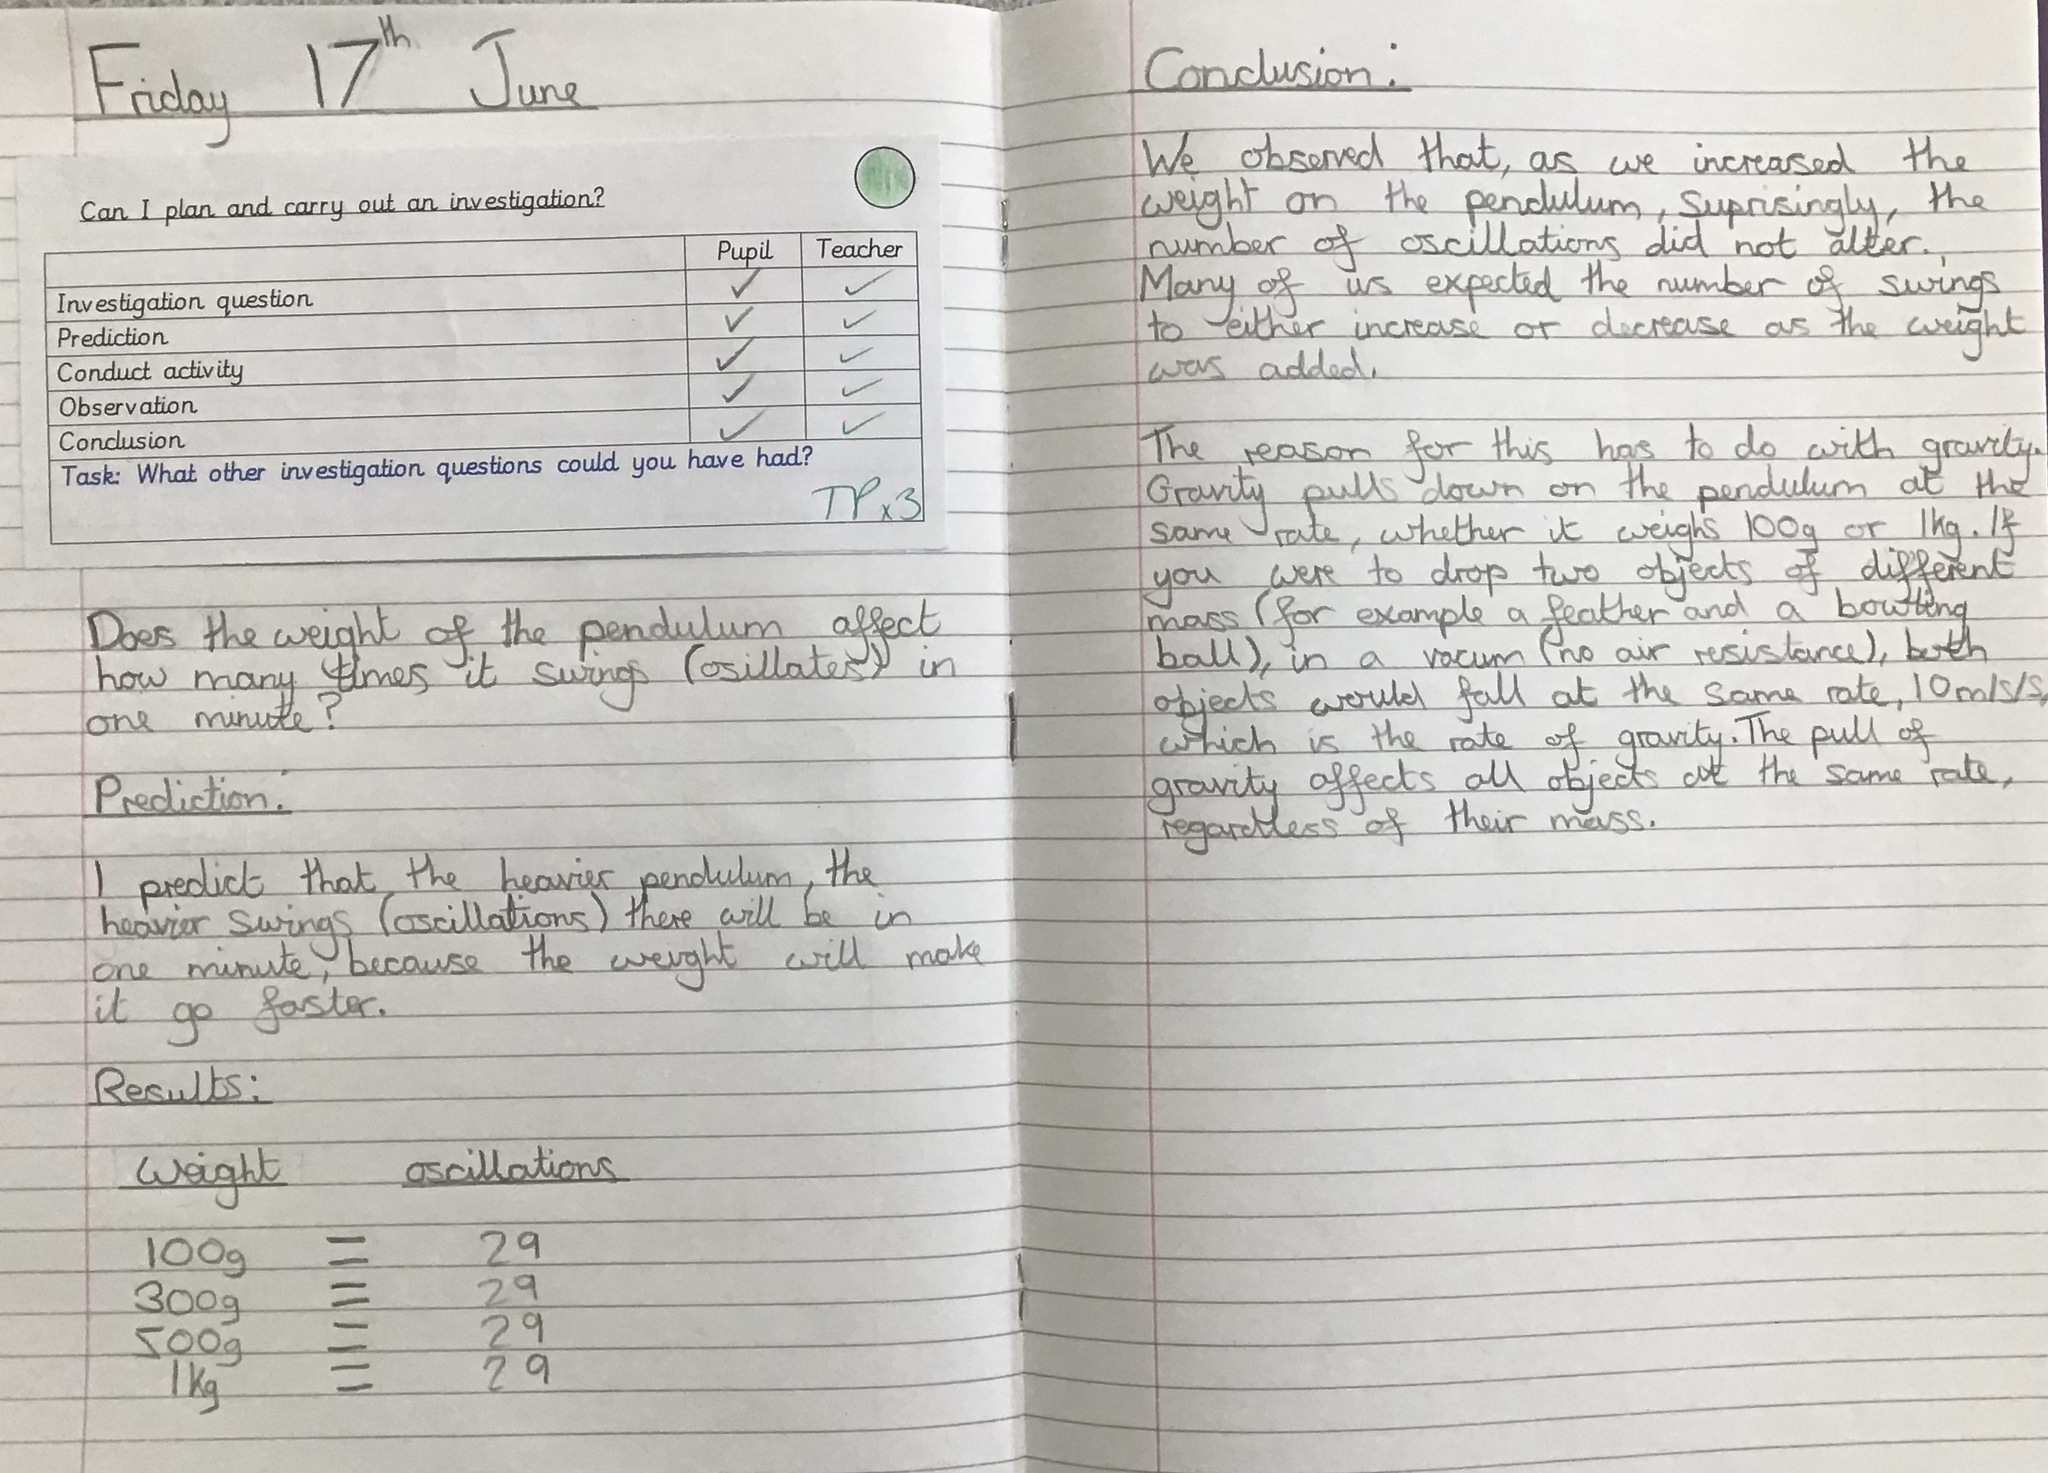 Friday 17th June
Can I plan and carry out an investigation?
Pupil Teacher
Investigation question ✓ ✓
Prediction ✓ ✓
Conduct activity ✓ ✓
Observation ✓ ✓
Conclusion ✓ ✓
Task: What other investigation questions could you have had?
TP x3
Does the weight of the pendulum affect
how many times it swings (osillates) in
one minute?
Prediction:
I predict that, the heavier pendulum, the
heavier swings (oscillations) there will be in
one minute, because the weight will make
it go faster.
Results:
Weight oscillations
100g = 29
300g = 29
500g = 29
1kg = 29
Conclusion:
We observed that, as we increased the
weight on the pendulum, suprisingly, the
number of oscillations did not alter.
Many of us expected the number of swings
to either increase or decrease as the weight
was added.
The reason for this has to do with gravity.
Gravity pulls down on the pendulum at the
same rate, whether it weighs 100g or 1kg. If
you were to drop two objects of different
mass (for example a feather and a bowling
ball), in a vacum (no air resistance), both
objects would fall at the same rate, 10m/s/s,
which is the rate of gravity. The pull of
gravity affects all objects at the same rate,
regardless of their mass.